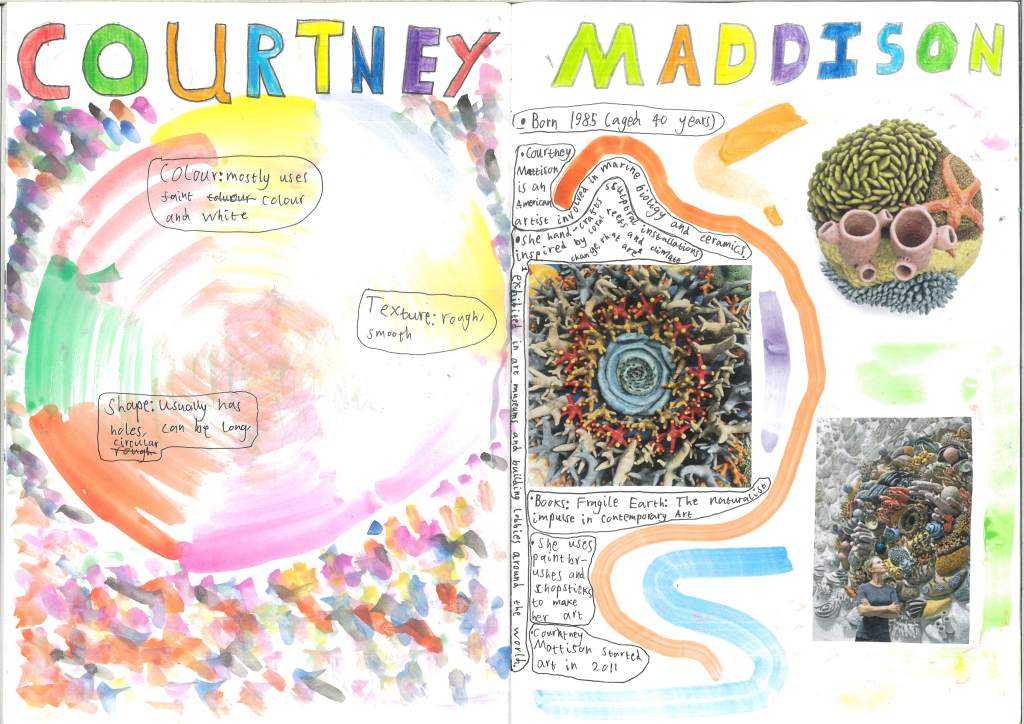 COURTNEY MADDISON
Colour: mostly uses
faint colour colour
and white
Texture: rough,
smooth
Shape: usually has
holes, can be long,
circular
rough
• Born 1985 (aged 40 years)
• Courtney
Mattison
is an
American
artist involved in marine biology and ceramics.
• She hand-crafts sculptural installations
inspired by coral reefs and climate
change, that are
exhibited in art museums and building lobbies around the world
• Books: Fragile Earth: The naturalism
impulse in contemporary Art
• She uses
paint br-
ushes and
chopsticks
to make
her art
• Courntney
Mattison started
art in 2011